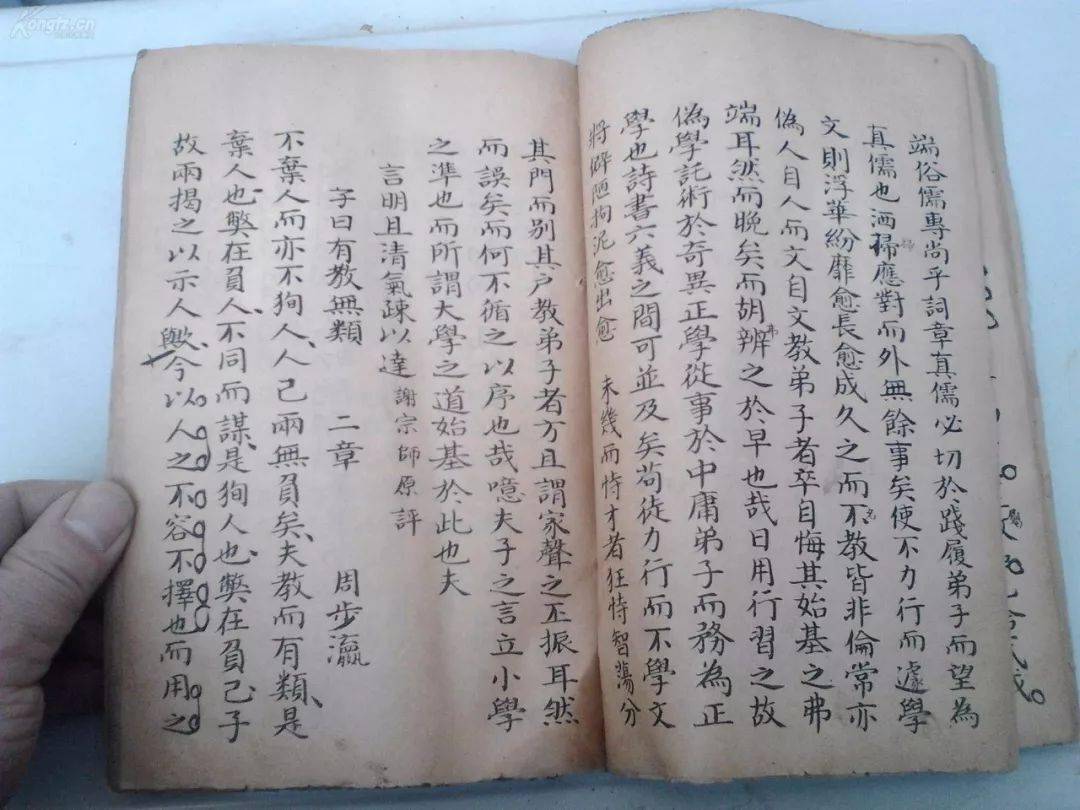 端俗儒專尚乎詞章真儒必切於踐履弟子而望為
真儒也洒掃應對而外無餘事矣使不力行而遽學
文則浮華紛靡愈長愈成久之而不教皆非倫常亦
偽人自人而文自文教弟子者卒自悔其始基之弗
端耳然而晚矣而胡弗辨之於早也哉日用行習之故
偽學託術於奇異正學從事於中庸弟子而務為正
學也詩書六義之間可並及矣苟徒力行而不學文
將僻陋拘泥愈出愈 未幾而恃才者狂恃智蕩分
其門而別其戶教弟子者方且謂家聲之丕振耳然
而誤矣而何不循之以序也哉噫夫子之言立小學
之準也而所謂大學之道始基於此也夫
言明且清氣疎以達 謝宗師原評
子曰有教無類 二章 周步瀛
不棄人而亦不狥人人己兩無負矣夫教而有類是
棄人也獘在負人不同而謀是狥人也獘在負己子
故兩揭之以示人與今以人之不容不擇也而用之
Kongfz.cn